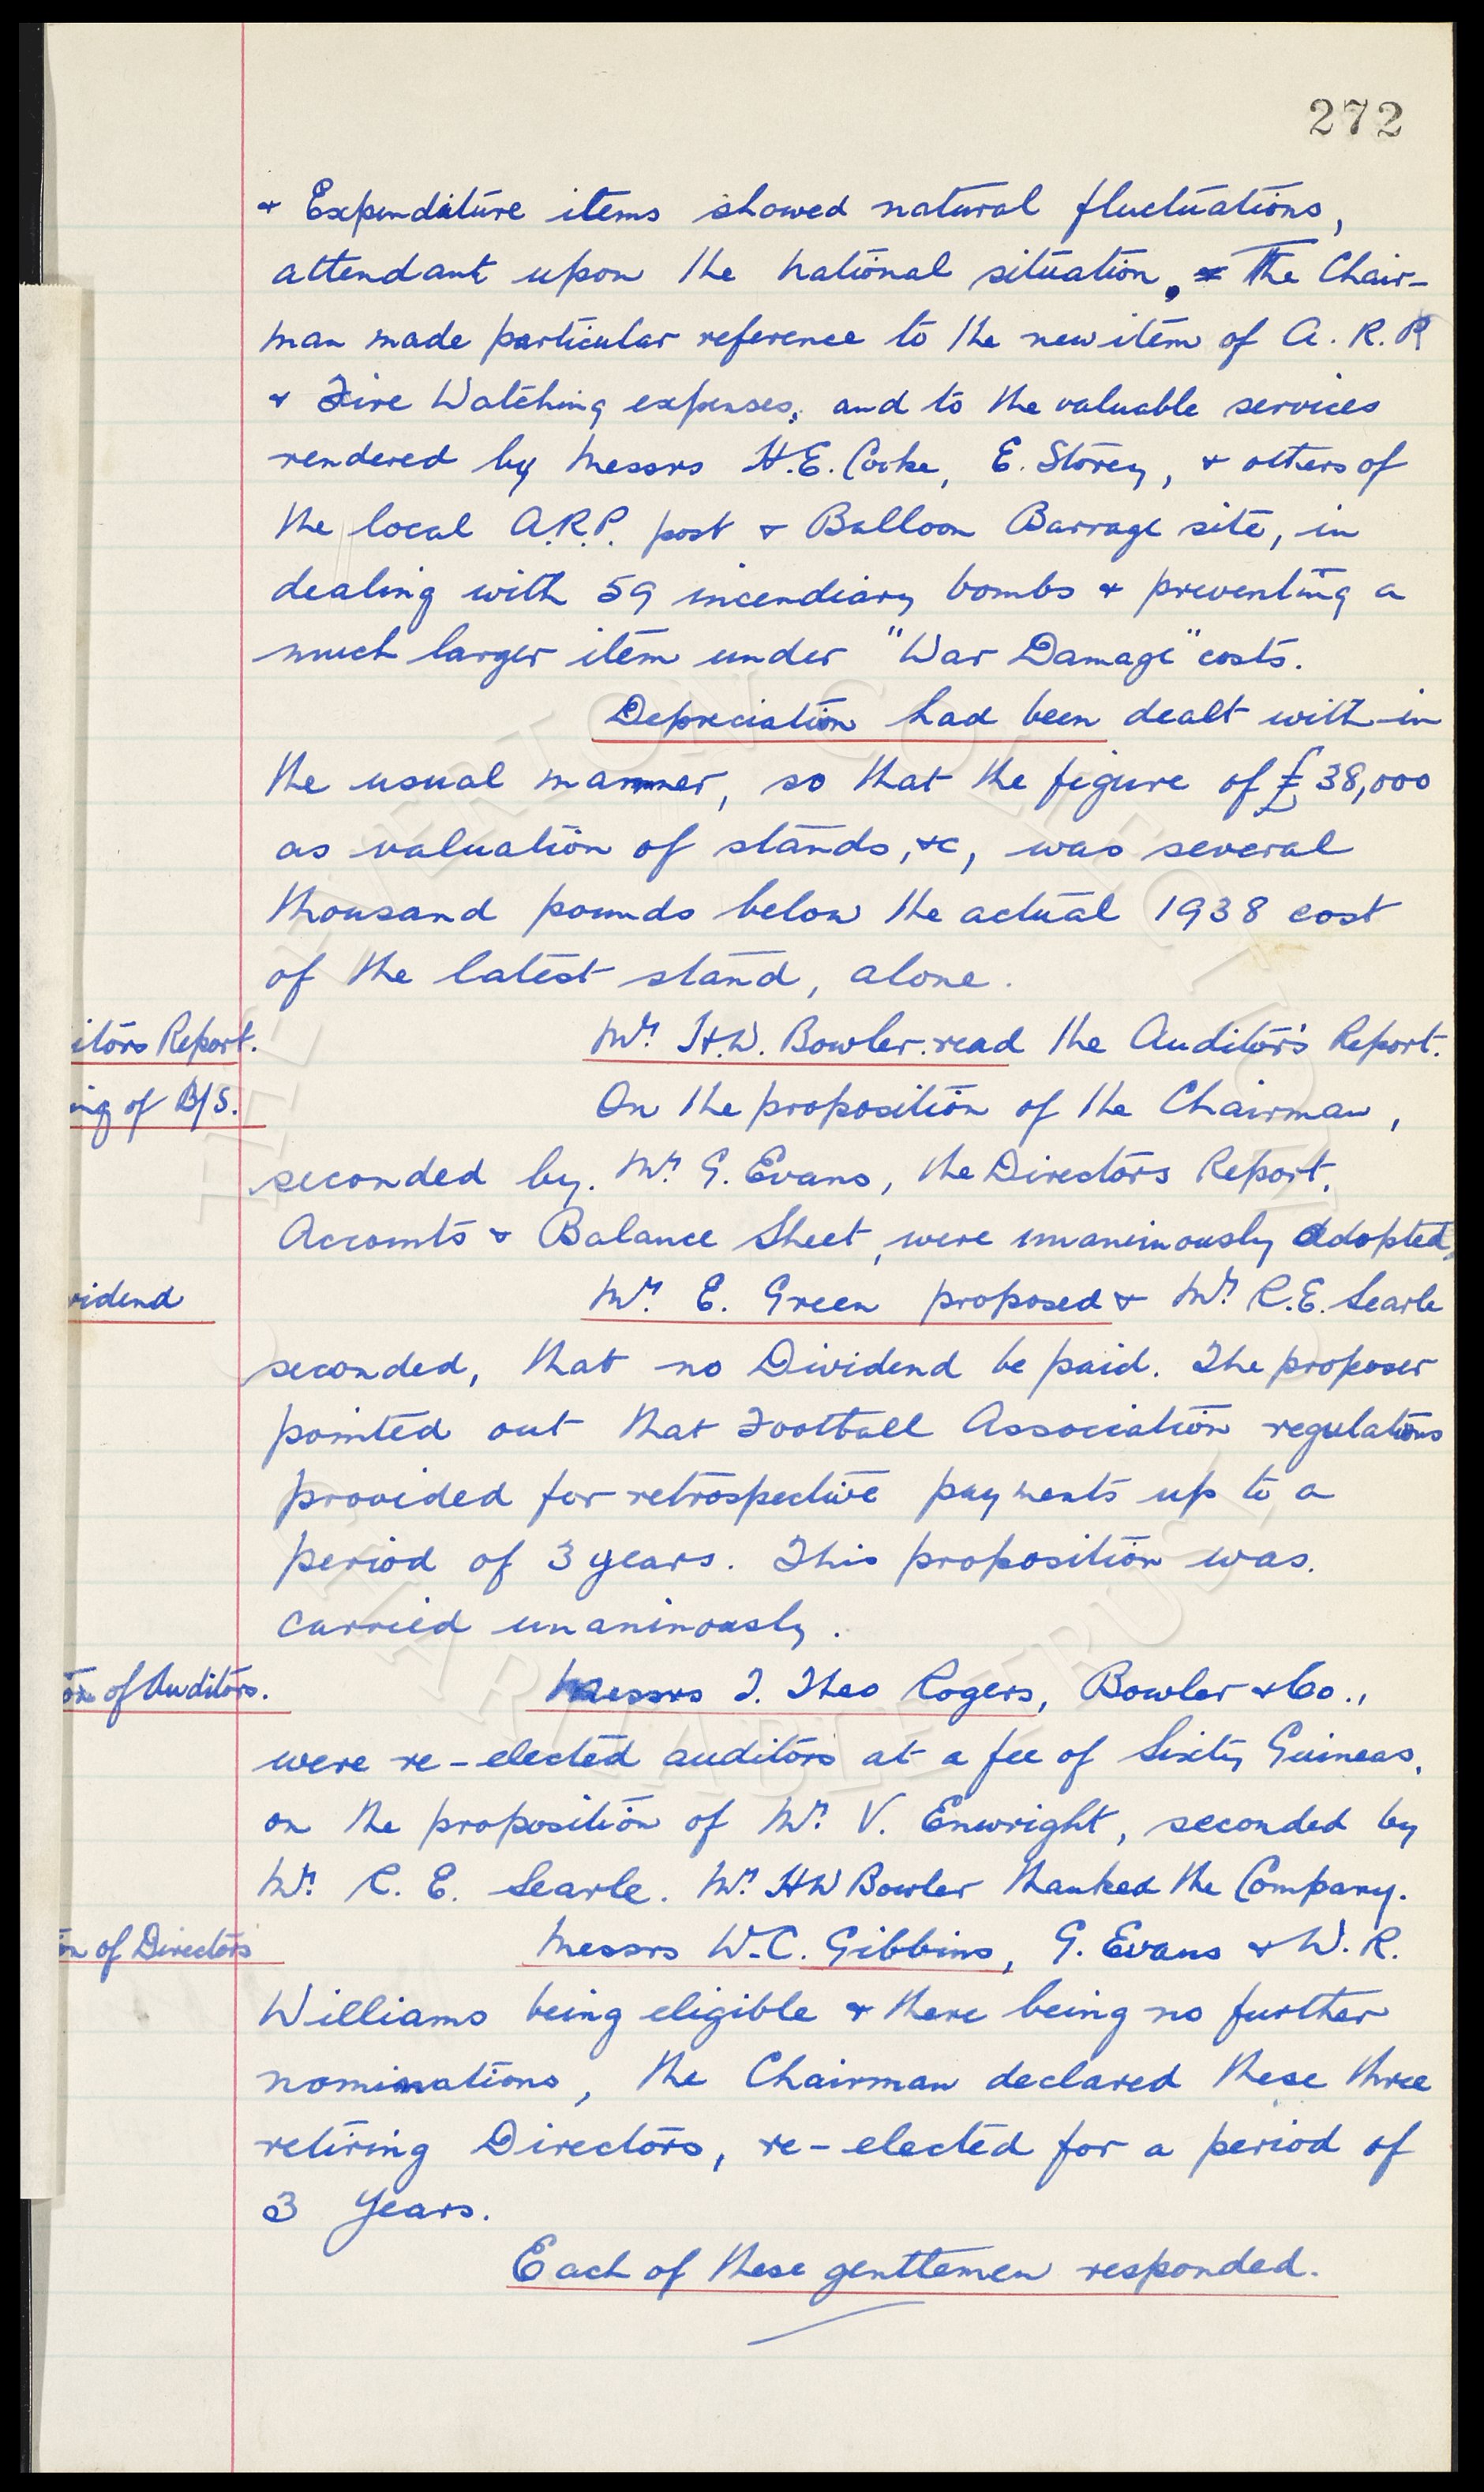 272
& Expenditure items showed natural fluctuations,
attendant upon the national situation. The Chair-
man made particular reference to the new item of A. R. P
& Fire Watching expenses, and to the valuable services
rendered by Messrs H.E. Cooke, E. Storey, & others of
the local A.R.P. post & Balloon Barrage site, in
dealing with 59 incendiary bombs & preventing a
much larger item under "War Damage" costs.
Depreciation had been dealt with in
the usual manner, so that the figure of £38,000
as valuation of stands, &c, was several
thousand pounds below the actual 1938 cost
of the latest stand, alone.
itors Report. Mr. H.W. Bowler read the Auditor's Report.
ing of B/S. On the proposition of the Chairman,
seconded by Mr. G. Evans, the Directors Report,
Accounts & Balance Sheet, were unanimously adopted.
vidend Mr. E. Green proposed & Mr. R.E. Searle
seconded, that no Dividend be paid. The proposer
pointed out that Football Association regulations
provided for retrospective payments up to a
period of 3 years. This proposition was
carried unanimously.
on of Auditors. Messrs T. Theo Rogers, Bowler & Co.,
were re-elected auditors at a fee of Sixty Guineas,
on the proposition of Mr. V. Enwright, seconded by
Mr. R. E. Searle. Mr. HW Bowler thanked the Company.
on of Directors Messrs W.C. Gibbins, G. Evans & W. R.
Williams being eligible & there being no further
nominations, the Chairman declared these three
retiring Directors, re-elected for a period of
3 Years.
Each of these gentlemen responded.
THE EVERTON COLLECTION
CHARITABLE TRUST